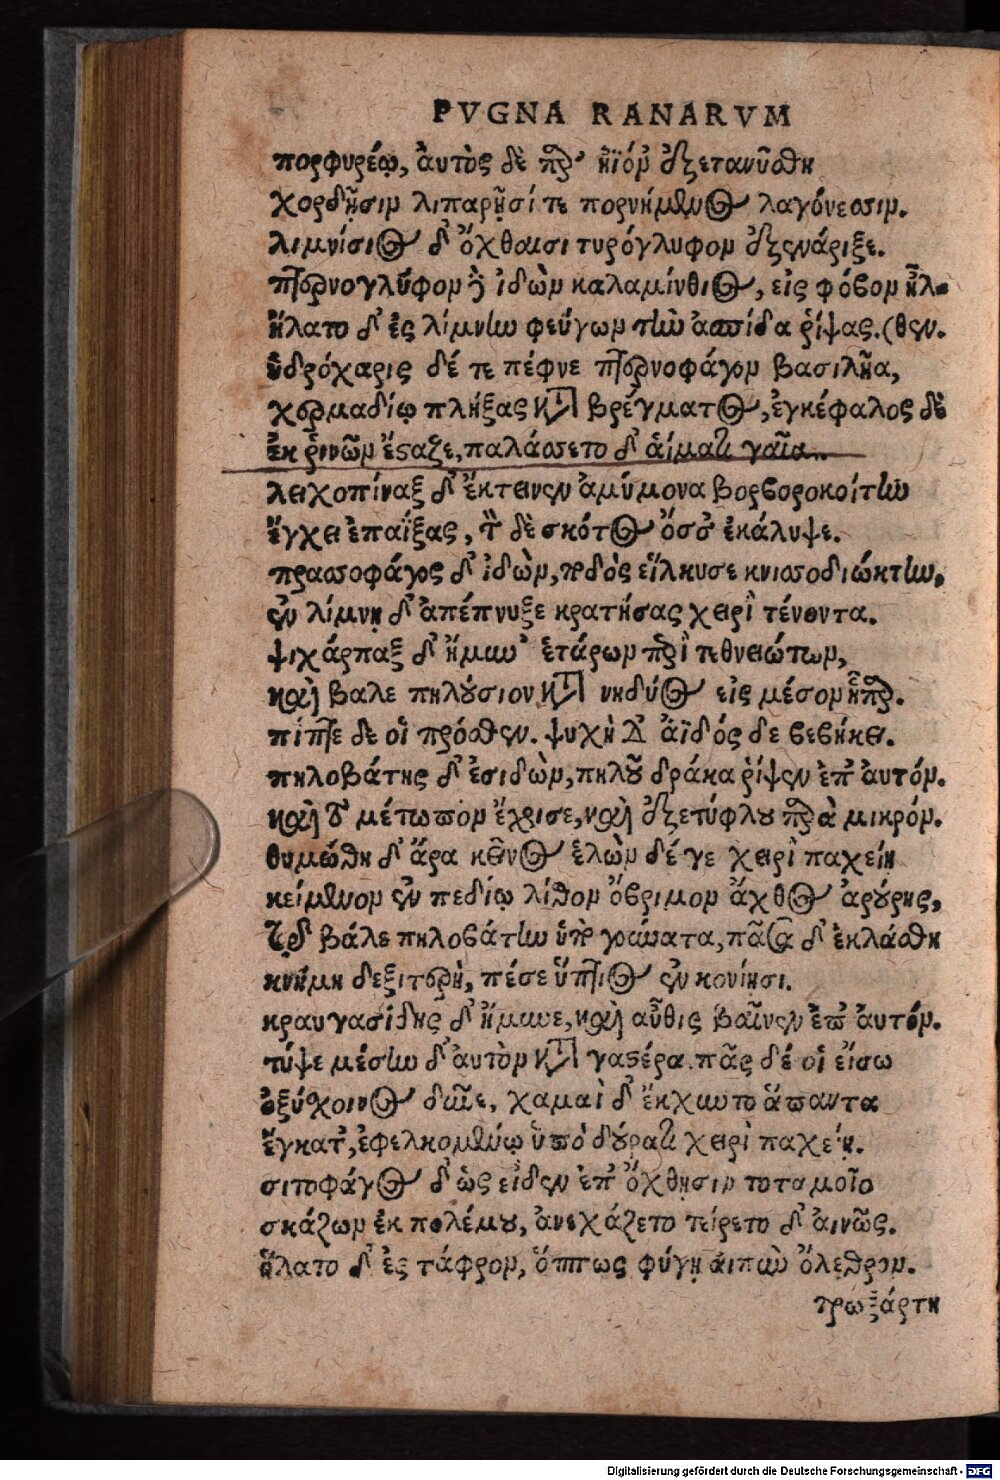 PVGNA RANARVM
πορφυρέῳ, ἀυτὸς δὲ παρ' ἠϊόν ἐξετανύσθη
χορδῇσιν λιπαρῇσί τε πορνύμενος λαγόνεσσιν.
λιμνίσιος δ' ὄχθαισι τυρόγλυφον ἐξενάριξε.
πτερνογλύφον δὲ ἰδὼν καλαμίνθιος, εἰς φόβον ἦλ-
ἥλατο δ' ἐς λίμνην φεύγων τὴν ἀσπίδα ῥίψας. (θεν.
ὑδρόχαρις δέ τε πέφνε πτερνοφάγον βασιλῆα,
χερμαδίῳ πλήξας κατὰ βρέγματος, ἐγκέφαλος δὲ
ἐκ ῥινῶν ἔσαζε, παλάσσετο δ' ἁίματι γαῖα.
λειχοπίναξ δ' ἔκτεινεν ἀμύμονα βορβοροκοίτην
ἔγχει ἐπαΐξας, τὸν δὲ σκότος ὄσσε ἐκάλυψε.
πρασσοφάγος δ' ἰδὼν, ποδὸς εἵλκυσε κνισσοδιώκτην,
ἐν λίμνῃ δ' ἀπέπνυξε κρατήσας χειρὶ τένοντα.
ψιχάρπαξ δ' ἤμυν' ἑτάρων περὶ τεθνειώτων,
καὶ βαλε πηλούσιον κατὰ νηδύος εἰς μέσον ἧπαρ.
πίπτε δε οἱ πρόσθεν. ψυχὴ δ' ἄϊδός δε βεβήκει.
πηλοβάτης δ' ἐσιδὼν, πηλοῦ δράκα ῥίψεν ἐπ' ἀυτόν.
καὶ τὸ μέτωπον ἔχρισε, καὶ ἐξετύφλου παρὰ μικρόν.
θυμώθη δ' ἄρα κεῖνος ἑλὼν δέ γε χειρὶ παχείῃ
κείμενον ἐν πεδίῳ λίθον ὄβριμον ἄχθος ἀρούρης,
τῷ δ βάλε πηλοβάτην ὑπὸ γούνατα, πᾶσα δ' ἐκλάσθη
κνήμη δεξιτερὴ, πέσε ὕπτιος ἐν κονίῃσι.
κραυγασίδης δ' ἤμυνε, καὶ αὖθις βαῖνεν ἐπ' ἀυτόν.
τύψε μέσην δ' ἀυτὸν κατὰ γαστέρα. πᾶς δέ οἱ εἴσω
ὀξύχοινος δῦνε, χαμαὶ δ' ἔκχυντο ἅπαντα
ἔγκατ', ἐφελκομένῳ ὑπὸ δούρατι χειρὶ παχείῃ.
σιτοφάγος δ' ὡς εἶδεν ἐπ' ὄχθῃσιν ποταμοῖο
σκάζων ἐκ πολέμου, ἀνεχάζετο τείρετο δ' ἀινῶς.
ἥλατο δ' ἐς τάφρον, ὅππως φύγῃ ἀιπὺν ὄλεθρον.
τρωξάρτη
Digitalisierung gefördert durch die Deutsche Forschungsgemeinschaft - DFG